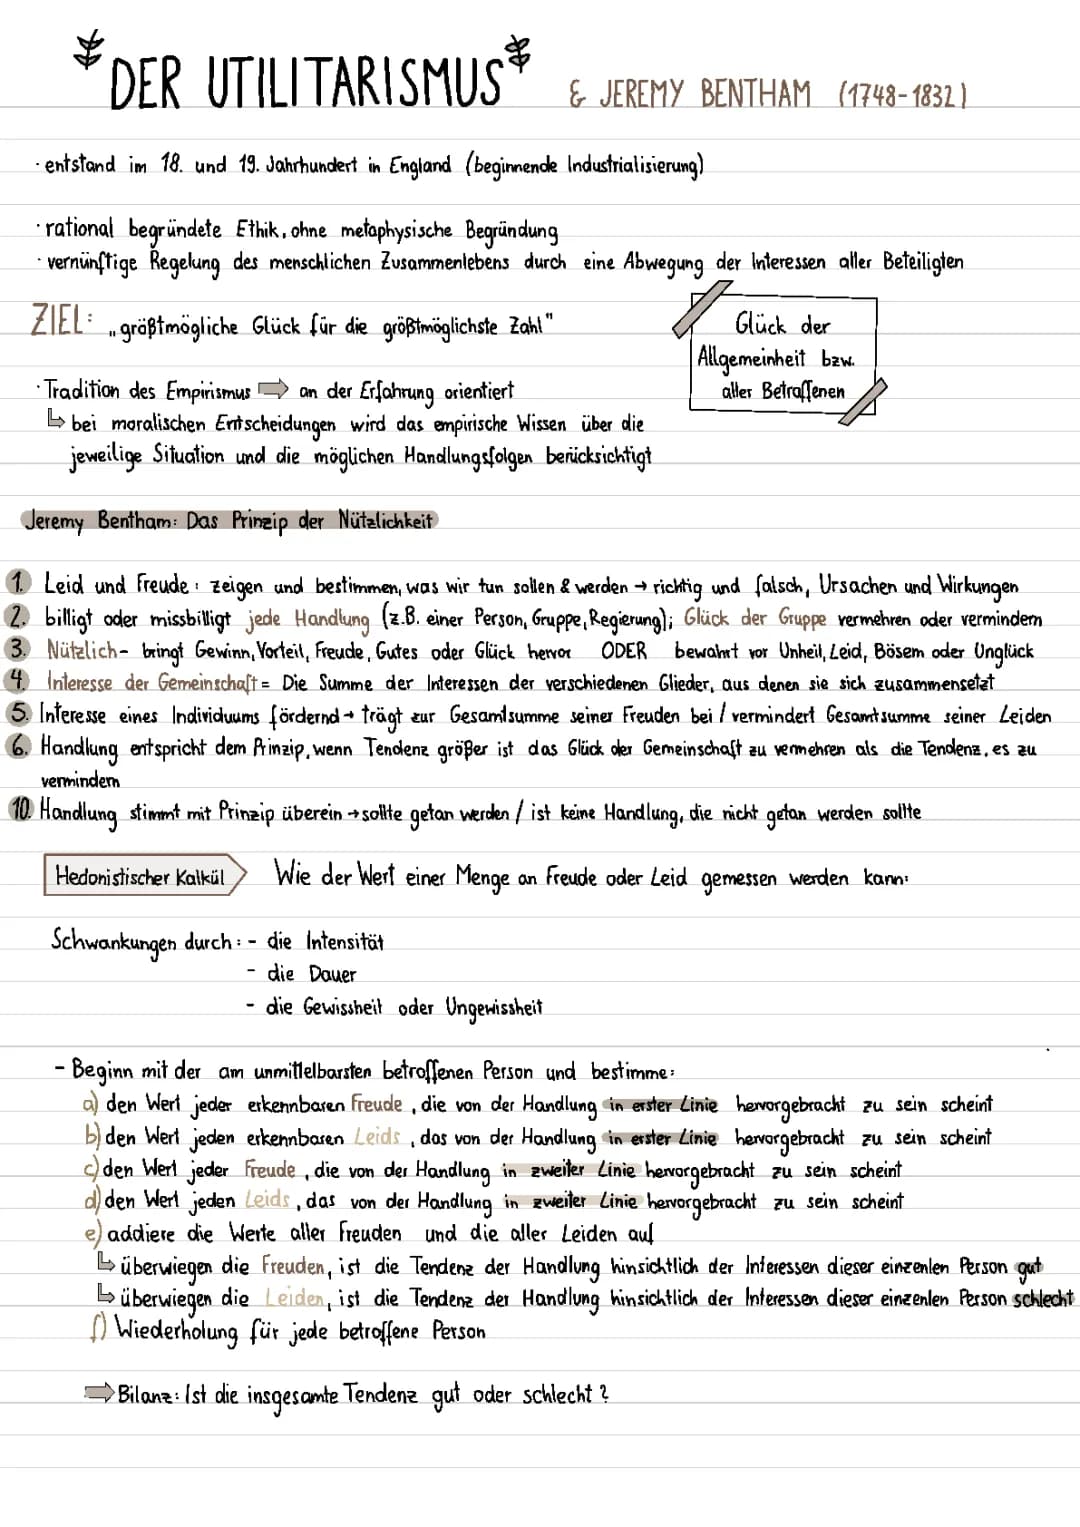 DER UTILITARISMUS & JEREMY BENTHAM (1748-1832)
· entstand im 18. und 19. Jahrhundert in England (beginnende Industrialisierung)
· rational begründete Ethik, ohne metaphysische Begründung
· vernünftige Regelung des menschlichen Zusammenlebens durch eine Abwegung der Interessen aller Beteiligten
ZIEL: „größtmögliche Glück für die größtmöglichste Zahl"
Glück der
Allgemeinheit bzw.
aller Betroffenen
· Tradition des Empirismus ⇒ an der Erfahrung orientiert
↳ bei moralischen Entscheidungen wird das empirische Wissen über die
jeweilige Situation und die möglichen Handlungsfolgen berücksichtigt
Jeremy Bentham: Das Prinzip der Nützlichkeit
1. Leid und Freude: zeigen und bestimmen, was wir tun sollen & werden → richtig und falsch, Ursachen und Wirkungen
2. billigt oder missbilligt jede Handlung (z.B. einer Person, Gruppe, Regierung); Glück der Gruppe vermehren oder vermindern
3. Nützlich - bringt Gewinn, Vorteil, Freude, Gutes oder Glück hervor ODER bewahrt vor Unheil, Leid, Bösem oder Unglück
4. Interesse der Gemeinschaft = Die Summe der Interessen der verschiedenen Glieder, aus denen sie sich zusammensetzt
5. Interesse eines Individuums fördernd → trägt zur Gesamtsumme seiner Freuden bei / vermindert Gesamtsumme seiner Leiden
6. Handlung entspricht dem Prinzip, wenn Tendenz größer ist das Glück der Gemeinschaft zu vermehren als die Tendenz, es zu
vermindern
10. Handlung stimmt mit Prinzip überein → sollte getan werden / ist keine Handlung, die nicht getan werden sollte
Hedonistischer Kalkül Wie der Wert einer Menge an Freude oder Leid gemessen werden kann:
Schwankungen durch: - die Intensität
- die Dauer
- die Gewissheit oder Ungewissheit
- Beginn mit der am unmittelbarsten betroffenen Person und bestimme:
a) den Wert jeder erkennbaren Freude, die von der Handlung in erster Linie hervorgebracht zu sein scheint
b) den Wert jeden erkennbaren Leids, das von der Handlung in erster Linie hervorgebracht zu sein scheint
c) den Wert jeder Freude, die von der Handlung in zweiter Linie hervorgebracht zu sein scheint
d) den Wert jeden Leids, das von der Handlung in zweiter Linie hervorgebracht zu sein scheint
e) addiere die Werte aller Freuden und die aller Leiden auf
↳ überwiegen die Freuden, ist die Tendenz der Handlung hinsichtlich der Interessen dieser einzenlen Person gut
↳ überwiegen die Leiden, ist die Tendenz der Handlung hinsichtlich der Interessen dieser einzenlen Person schlecht
f) Wiederholung für jede betroffene Person
⇒ Bilanz: Ist die insgesamte Tendenz gut oder schlecht?